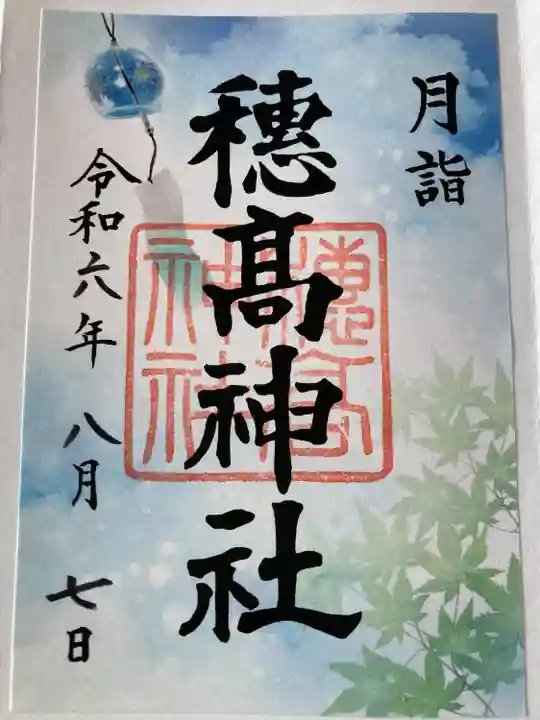 月詣
穗髙神社
令和六年 八月 七日
穗高
神社